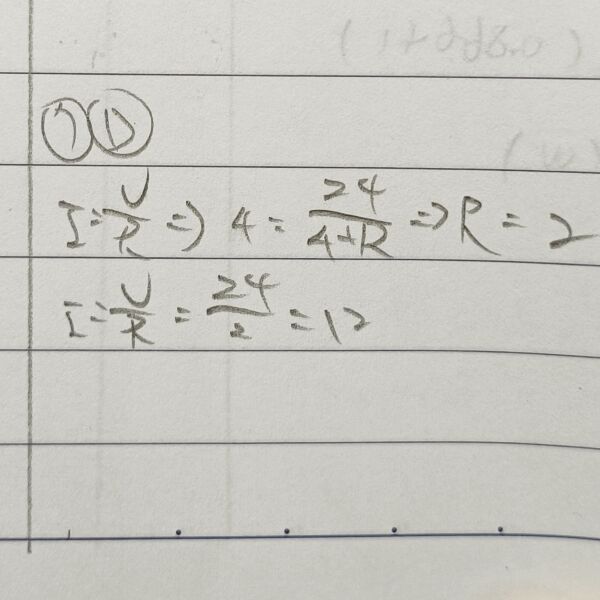 ⑦ Ⓓ
I = U/R => 4 = 24/(4+R) => R = 2
I = U/R = 24/2 = 12